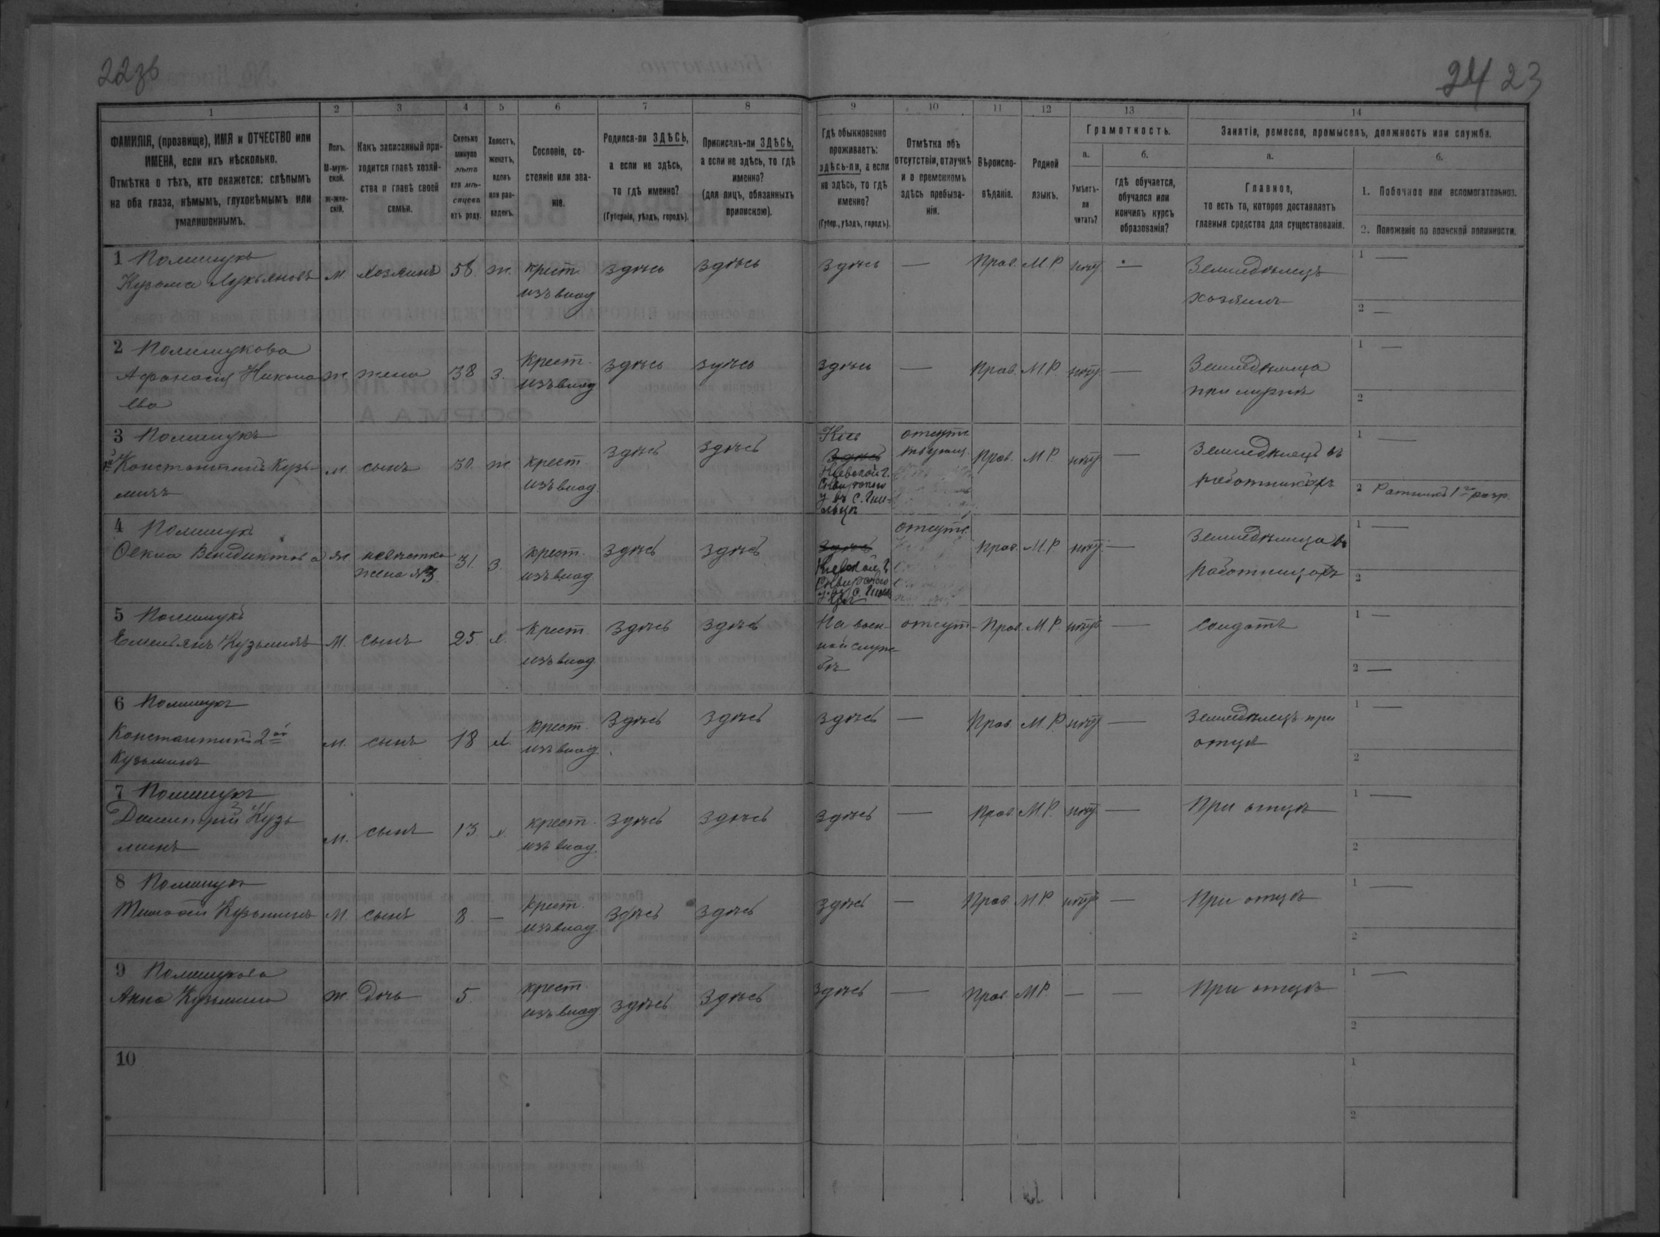 24 23
1 2 3 4 5 6 7 8 9 10 11 12 13 14
ФАМИЛІЯ, (прозвище), ИМЯ и ОТЧЕСТВО или ИМЕНА, если ихъ нѣсколько.
Отмѣтка о тѣхъ, кто окажется: слѣпымъ на оба глаза, нѣмымъ, глухонѣмымъ или умалишоннымъ.
Полъ.
М-муж-
ской.
Ж-жен-
скій.
Какъ записанный при-
ходится главѣ хозяй-
ства и главѣ своей
семьи.
Сколько
минуло
лѣтъ
или мѣ-
сяцевъ
отъ роду.
Холостъ,
женатъ,
вдовъ
или раз-
веденъ.
Сословіе, со-
стояніе или зва-
ніе.
Родился-ли ЗДѢСЬ,
а если не здѣсь,
то гдѣ именно?
(Губернія, уѣздъ, городъ).
Приписанъ-ли ЗДѢСЬ,
а если не здѣсь, то гдѣ
именно?
(для лицъ, обязанныхъ
припискою).
Гдѣ обыкновенно
проживаетъ:
здѣсь-ли, а если
не здѣсь, то гдѣ
именно?
(Губер., уѣздъ, городъ).
Отмѣтка объ
отсутствіи, отлучкѣ
и о временномъ
здѣсь пребыва-
ніи.
Вѣроиспо-
вѣданіе.
Родной
языкъ.
Грамотность.
а. б.
Умѣетъ-
ли
читать?
гдѣ обучается,
обучался или
кончилъ курсъ
образованія?
Занятіе, ремесло, промыселъ, должность или служба.
а. б.
Главное,
то есть то, которое доставляетъ
главныя средства для существованія.
1. Побочное или вспомогательное.
2. Положеніе по воинской повинности.
1 Полищукъ
Кузьма Лукьяновъ м. хозяинъ 56 ж. крест. здѣсь здѣсь здѣсь — Прав. М.Р. нѣтъ — Земледѣлецъ 1 —
изъ влад. хозяинъ 2 —
2 Полищукова
Афанасія Никола ж жена 38 з. крест. здѣсь здѣсь здѣсь — Прав. М.Р. нѣтъ — Земледѣлица 1 —
ева изъ влад. при мужѣ 2
3 Полищукъ
Константинъ Кузь- м. сынъ 30. ж крест. здѣсь здѣсь здѣсь отсутс Прав. М.Р. нѣтъ — Земледѣлецъ въ 1 —
минъ изъ влад. Кіевской г. работникахъ 2 Ратникъ 1го разр.
4 Полищук
Венедиктова ж невѣстка 31. з. крест. здѣсь здѣсь здѣсь отсутс. Прав. М.Р. нѣтъ — Земледѣлица въ 1 —
жена №3. изъ влад. Кіевской г. работницахъ 2
5 Полищукъ
Емельянъ Кузьминъ м. сынъ 25 х. крест. здѣсь здѣсь На воен- отсут. Прав. М.Р. нѣтъ — солдатъ 1 —
изъ влад. ной служ
бѣ 2 —
6 Полищукъ
Константинъ 2ой м. сынъ 18 х крест. здѣсь здѣсь здѣсь — Прав. М.Р. нѣтъ — Земледѣлецъ при 1 —
Кузьминъ изъ влад. отцѣ 2
7 Полищукъ
Димитрій Кузь м. сынъ 13 х. крест. здѣсь здѣсь здѣсь — Прав. М.Р. нѣтъ — При отцѣ 1 —
минъ изъ влад. 2
8 Полищукъ
Тимофей Кузьминъ м сынъ 8 — крест. здѣсь здѣсь здѣсь — Прав. М.Р. нѣтъ — При отцѣ 1 —
изъ влад. 2
9 Полищукова
Анна Кузьмина ж. Дочь 5 крест. здѣсь здѣсь здѣсь — Прав. М.Р. — — При отцѣ 1 —
изъ влад. 2
10 1
2